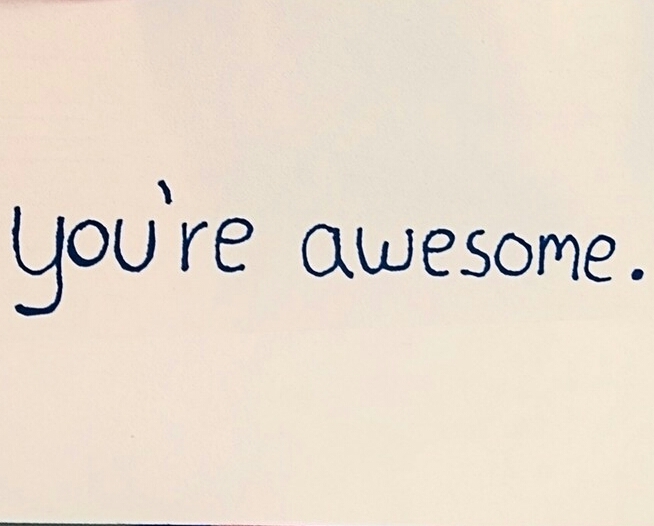 you're awesome.